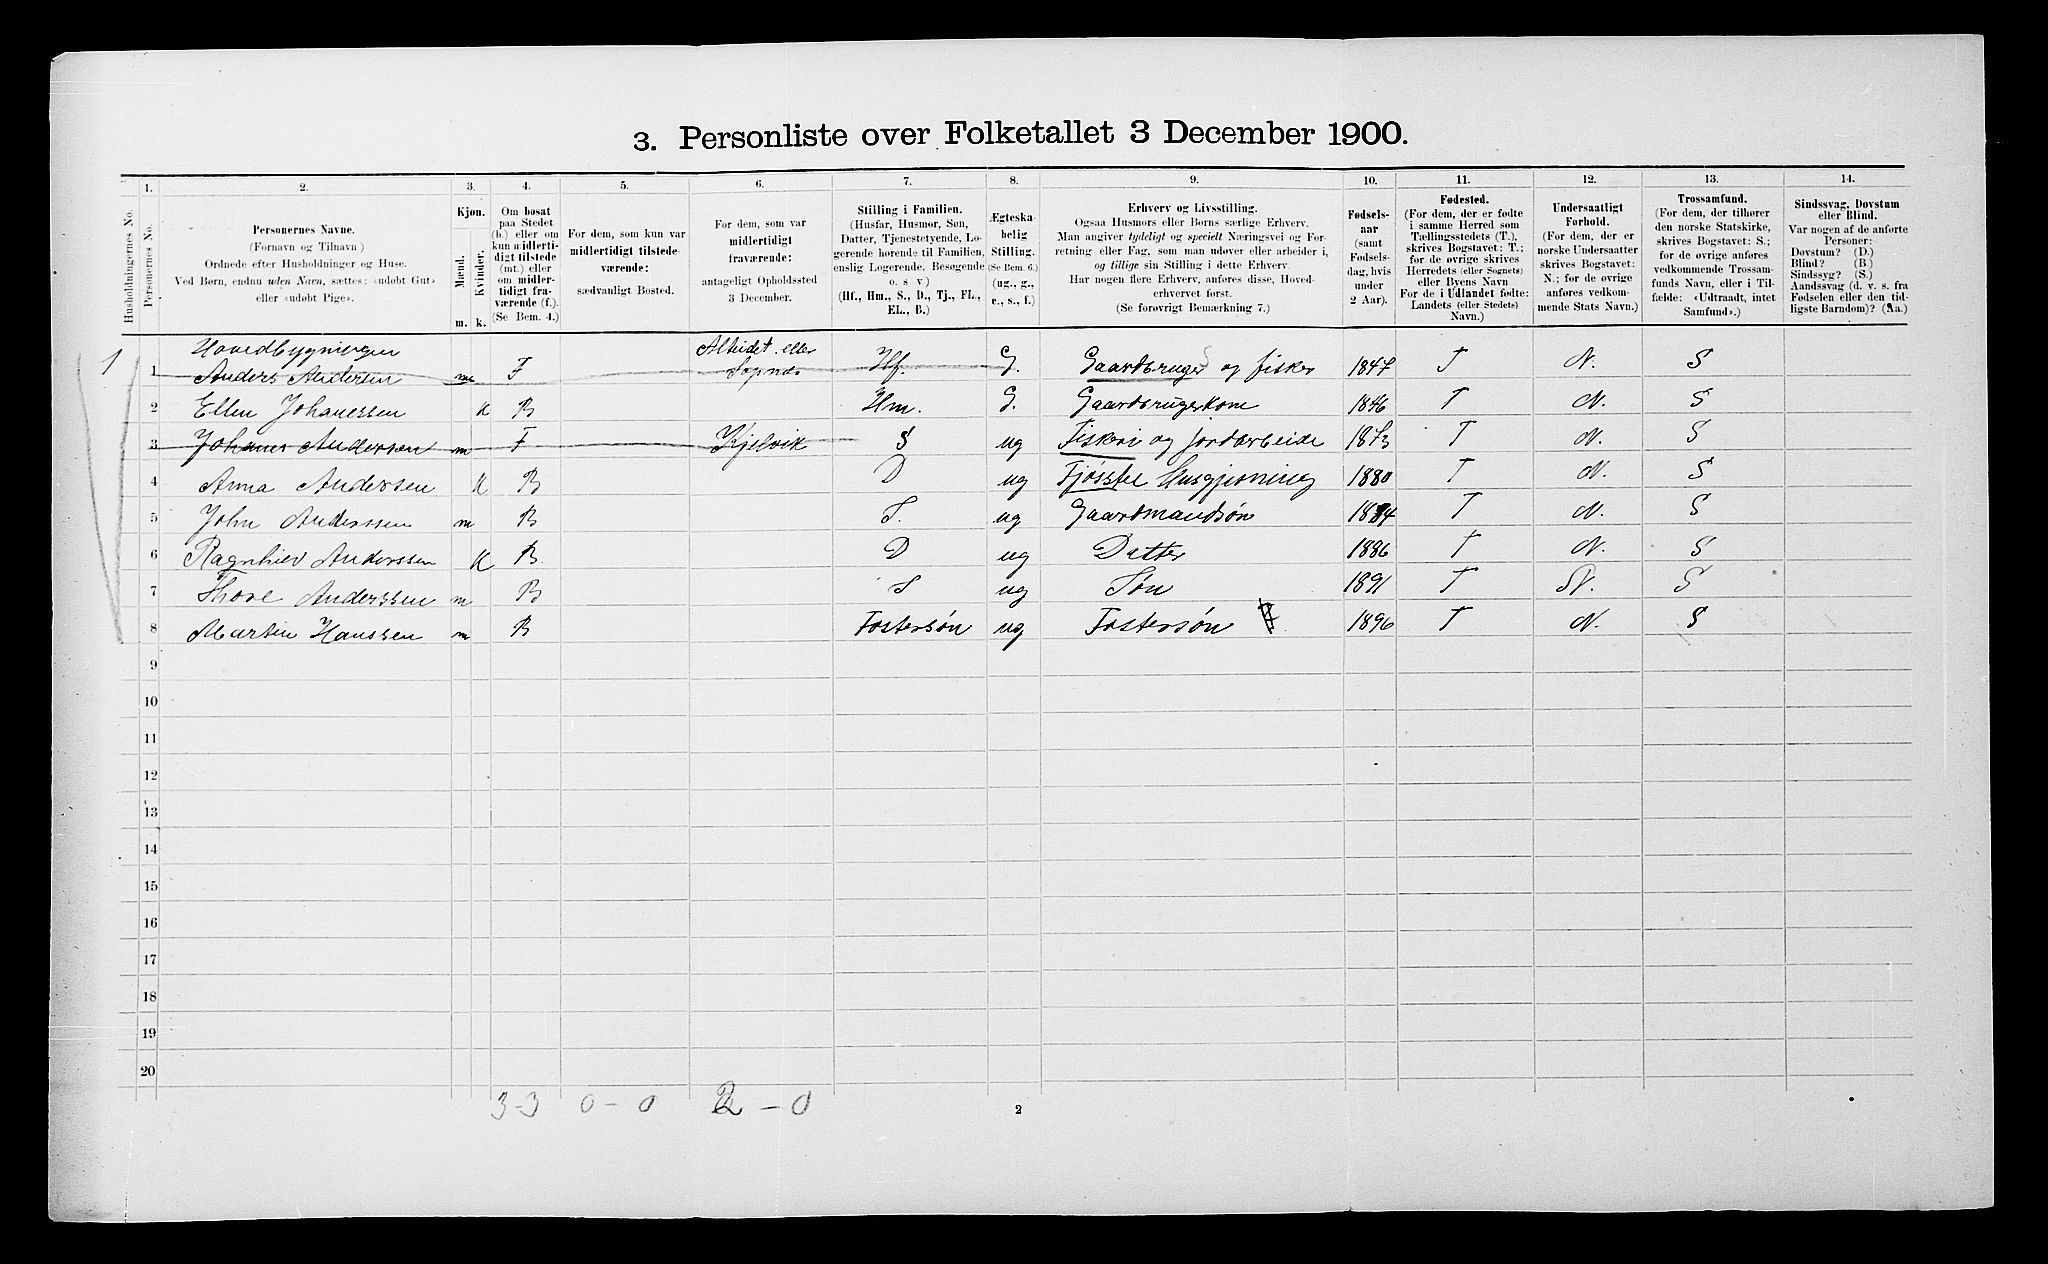 3. Personliste over Folketallet 3 December 1900.
Husholdningernes No.
1.
Personernes No.
2.
Personernes Navne.
(Fornavn og Tilnavn)
Ordnede efter Husholdninger og Huse.
Ved Børn, endnu uden Navn, sættes: «udøbt Gut»
eller «udøbt Pige».
3.
Kjøn.
Mænd.
Kvinder.
m. k.
4.
Om bosat
paa Stedet
(b.) eller om
kun midlerti-
digt tilstede
(mt.) eller
om midler-
tidigt fra-
værende (f.).
(Se Bem. 4.)
5.
For dem, som kun var
midlertidigt tilstede-
værende:
sædvanligt Bosted.
6.
For dem, som var
midlertidigt
fraværende:
antageligt Opholdssted
3 December.
7.
Stilling i Familien.
(Husfar, Husmor, Søn,
Datter, Tjenestetyende, Lo-
gerende hørende til Familien,
enslig Logerende, Besøgende
o. s. v.)
(Hf., Hm., S., D., Tj., FL.,
EL., B.)
8.
Ægteska-
belig
Stilling.
(Se Bem. 6.)
(ug., g.,
e., s., f.)
9.
Erhverv og Livsstilling.
Ogsaa Husmors eller Børns særlige Erhverv.
Man angiver tydeligt og specielt Næringsvei og For-
retning eller Fag, som man udøver eller arbeider i,
og tillige sin Stilling i dette Erhverv.
Har nogen flere Erhverv, anføres disse, Hoved-
erhvervet først.
(Se forøvrigt Bemærkning 7.)
10.
Fødsels-
aar
(samt
Fødsels-
dag, hvis
under
2 Aar).
11.
Fødested.
(For dem, der er fødte
i samme Herred som
Tællingsstedets (T.),
skrives Bogstavet: T.;
for de øvrige skrives
Herredets (eller Sognets)
eller Byens Navn
For de i Udlandet fødte:
Landets (eller Stedets)
Navn.)
12.
Undersaatligt
Forhold.
(For dem, der er
norske Undersaatter
skrives Bogstavet:
N.; for de øvrige
anføres vedkom-
mende Stats Navn.)
13.
Trossamfund.
(For dem, der tilhører
den norske Statskirke,
skrives Bogstavet: S.;
for de øvrige anføres
vedkommende Trossam-
funds Navn, eller i Til-
fælde: «Udtraadt, intet
Samfund».)
14.
Sindssvag, Døvstum
eller Blind.
Var nogen af de anførte
Personer:
Døvstum? (D.)
Blind? (B.)
Sindssyg? (S.)
Aandssvag (d. v. s. fra
Fødselen eller den tid-
ligste Barndom)? (Aa.)
Hovedbygningen
1 1 Anders Andersen m F eller Hf. G. Gaardbruger og fisker 1847 T N. S
2 Ellen Johanessen K B Hm. G. Gaardbrugerkone 1846 T N. S
3 Johanes Andersen m F Kjelvik S ug Fiskeri og jordarbeide 1873 T N. S
4 Anna Andersen K B D ug 1880 T N. S
5 John Anderssen m B S. ug Gaardmandsøn 1884 T N. S
6 Anderssen K B D ug Datter 1886 T N. S
7 Thore Anderssen m B S ug Søn 1891 T N. S
8 Martin Hanssen m B Fostersøn ug Fostersøn 1896 T N. S
9
10
11
12
13
14
15
16
17
18
19
20
3-3 0-0 2-0
2